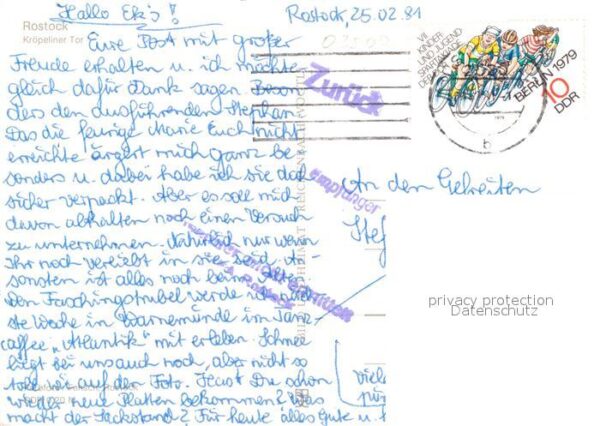 Hallo Ek's!
Rostock, 25.02.81
Rostock
Kröpeliner Tor
Eure Post mit großer
Freude erhalten u. ich möchte
gleich dafür Dank sagen
des den ausführenden Stephan
Das die feurige Marie Euch nicht
erreichte ärgert mich ganz be
sonders u. dabei habe ich sie doch
sicher verpackt. Aber es soll mich
davon abhalten noch einen Versuch
zu unternehmen. Natürlich nur wenn
Ihr noch in sie seid. An
sonsten ist alles noch beim Alten
Den Faschingstrubel werde ich näch
ste Woche in Warnemünde im Tanz
caffee „Atlantik" mit erleben. Schnee
liegt bei uns auch noch, aber nicht so
toll wie auf dem Foto. Hast Du schon
wieder neue Platten bekommen? Was
macht der Fackstand? Für heute alles Gute u.
Zurück
Empfänger
VII.
KINDER
UND JUGEND
SPARTAKIADE
BERLIN 1979
10
DDR
An den Gefreiten
Stef
privacy protection
Datenschutz
Viele